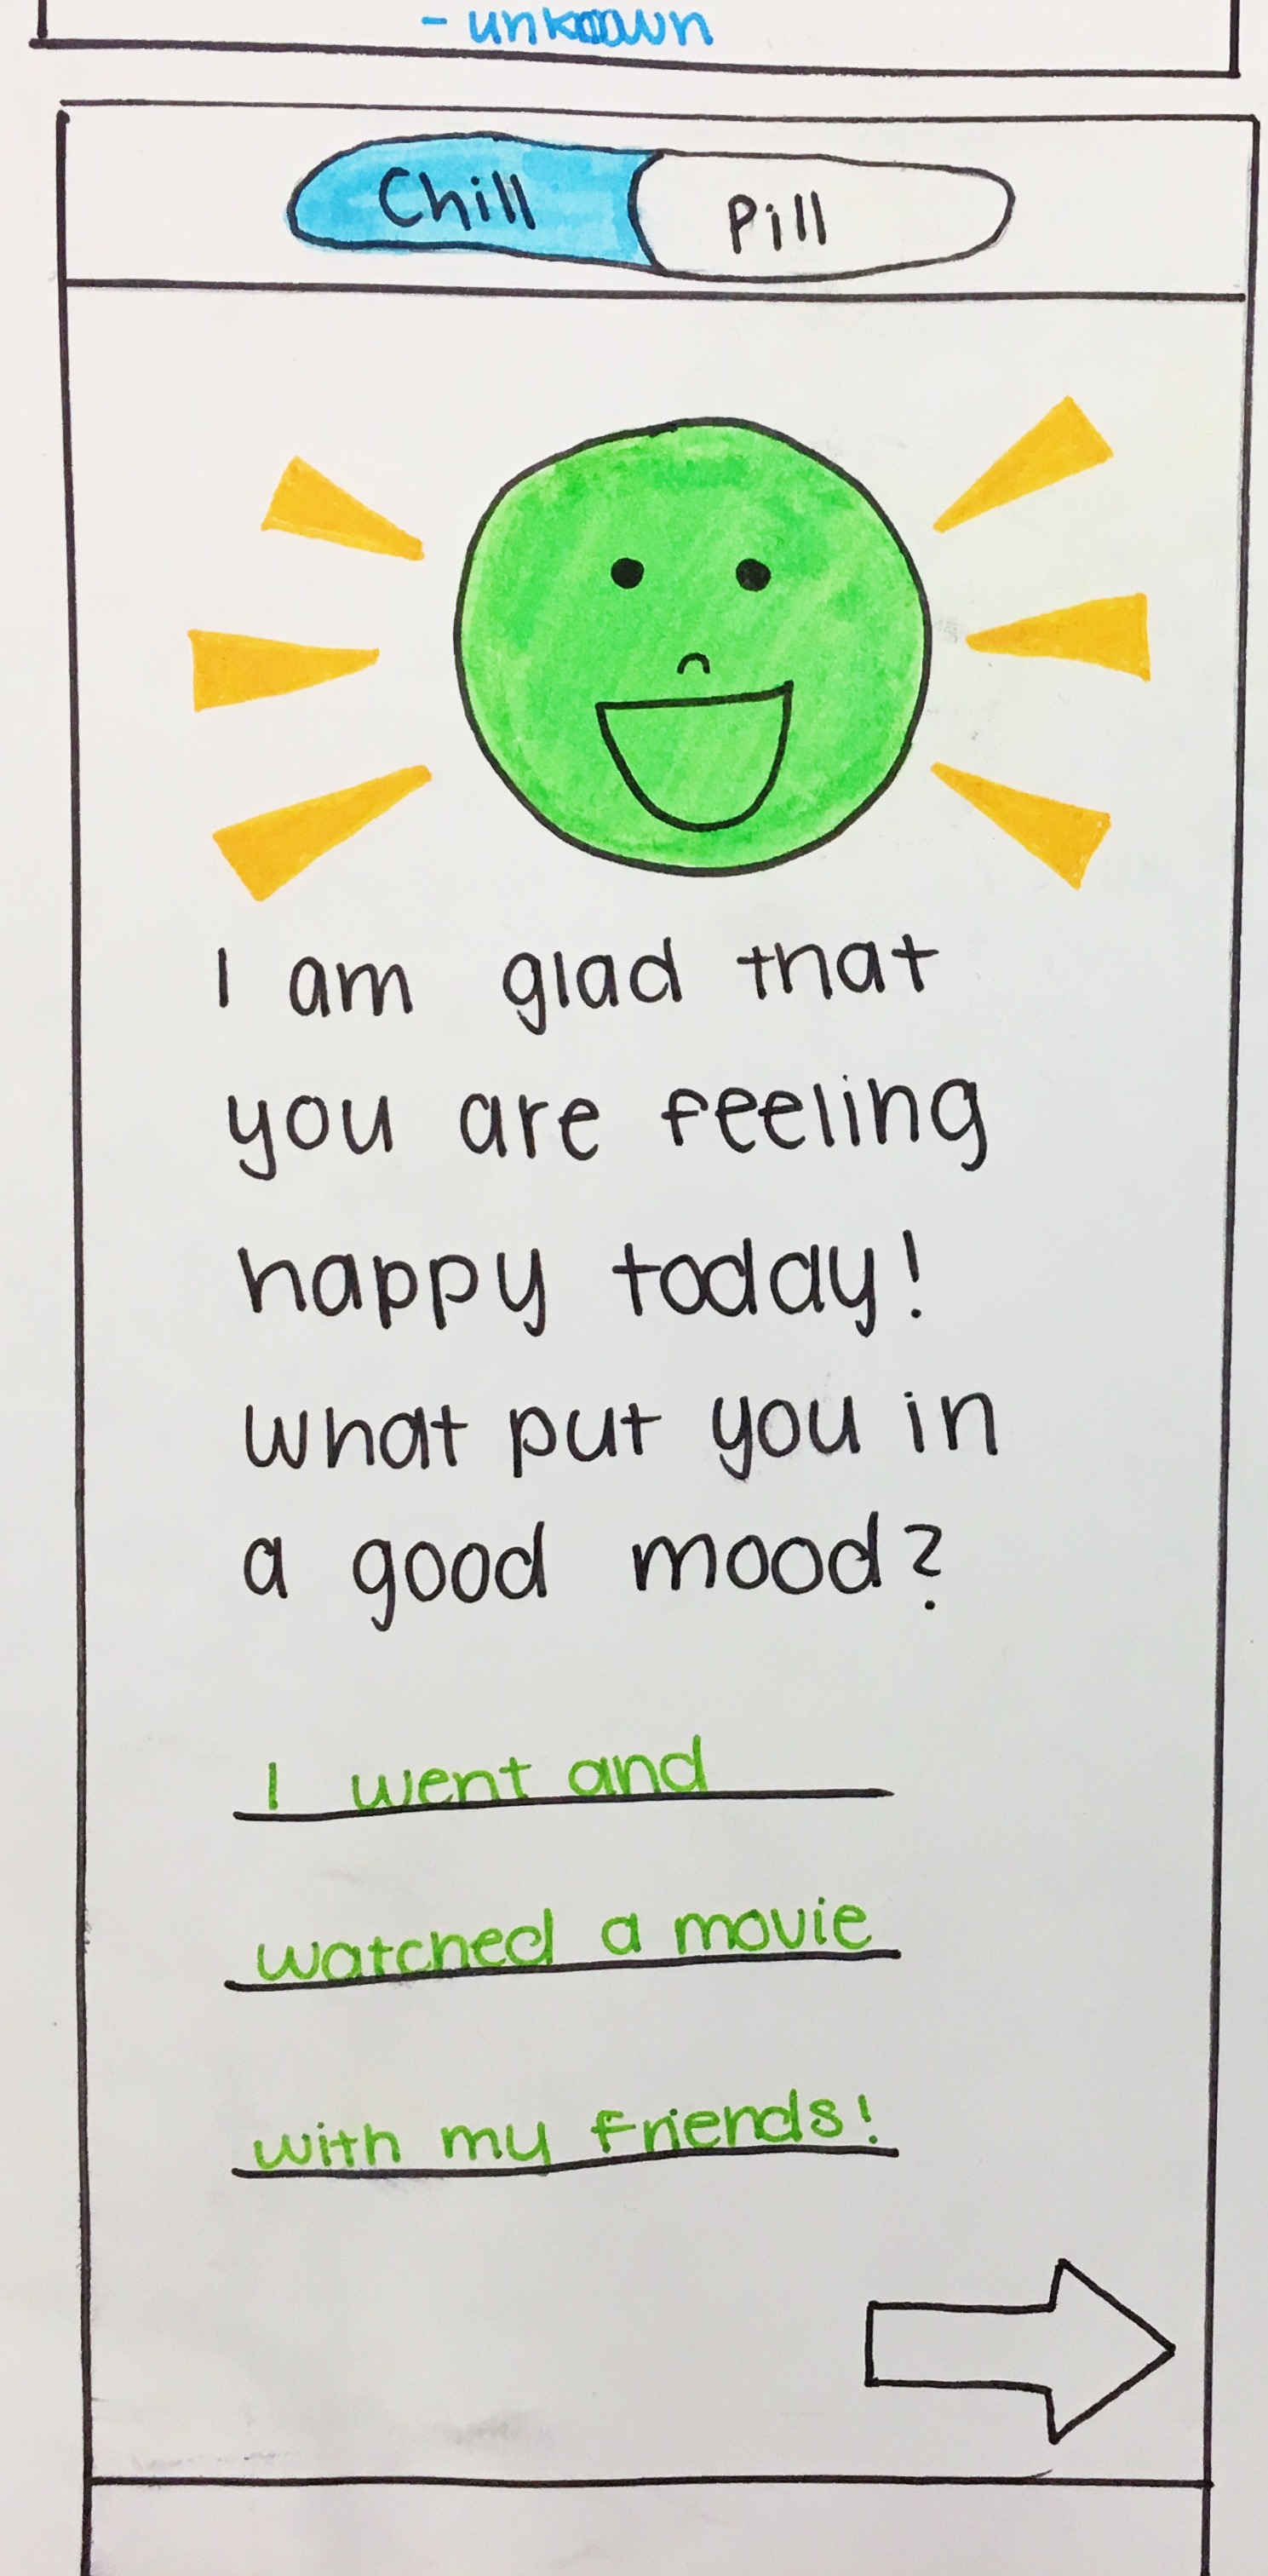 - unknown
Chill Pill
I am glad that
you are feeling
happy today!
What put you in
a good mood?
I went and
watched a movie
with my friends!